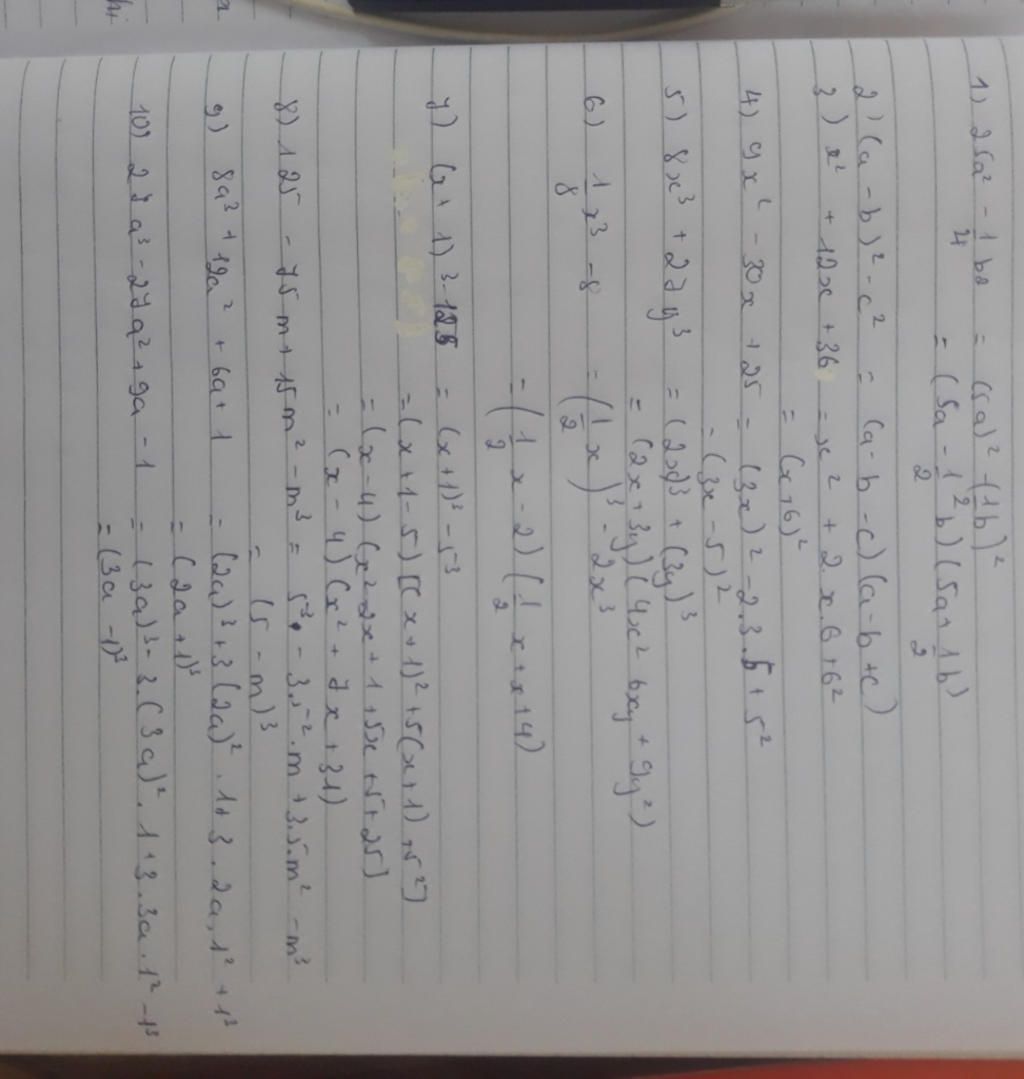 1) 25a² - 1/4 b² = (5a)² - (1/2 b)²
= (5a - 1/2 b) (5a + 1/2 b)
2) (a - b)² - c² = (a - b - c) (a - b + c)
3) x² + 12x + 36 = x² + 2.x.6 + 6²
= (x+6)²
4) 9x² - 30x + 25 = (3x)² - 2.3.5 + 5²
= (3x - 5)²
5) 8x³ + 27y³ = (2x)³ + (3y)³
= (2x + 3y) (4x² 6xy + 9y²)
6) 1/8 x³ - 8 = (1/2 x)³ - 2x³
= (1/2 x - 2) (1/2 x + x + 4)
7) (x + 1)³ - 125 = (x+1)³ - 5³
= (x + 1 - 5) [(x + 1)² + 5(x+1) + 5²]
= (x - 4) (x² 2x + 1 + 5x + 5 + 25]
= (x - 4) (x² + 7x + 31)
8) 125 - 75m + 15m² - m³ = 5³ - 3.5².m + 3.5.m² - m³
= (5 - m)³
9) 8a³ + 12a² + 6a + 1 = (2a)³ + 3(2a)².1 + 3.2a.1² + 1³
= (2a + 1)³
10) 27a³ - 27a² + 9a - 1 = (3a)³ - 3.(3a)².1 + 3.3a.1² - 1³
= (3a - 1)³